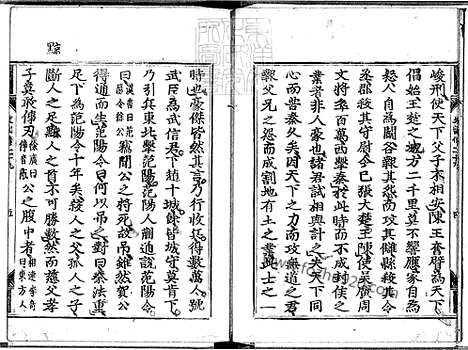 峻刑使天下父子不相安陳王奮臂為天下
倡始王楚之地方二千里莫不響應家自為
怒人自為鬬各報其怨而攻其讎縣殺其令
丞郡殺其守尉今已張大楚王陳使吳廣周
文將卒百萬西擊秦於此時而不成封侯之
業者非人豪也諸君試相與計之夫天下同
心而苦秦久矣因天下之力而攻無道之君
報父兄之怨而成割地有土之業此士之一
時也豪傑皆然其言乃行收兵得數萬人號
武臣為武信君下趙十城餘皆城守莫肯下
乃引兵東北擊范陽范陽人蒯通說范陽令
曰竊聞公之將死故弔雖然賀公
得通而生范陽令曰何以弔之對曰秦法重
足下為范陽令十年矣殺人之父孤人之子
斷人之足黥人之首不可勝數然而慈父孝
子莫敢倳刃公之腹中者
黥